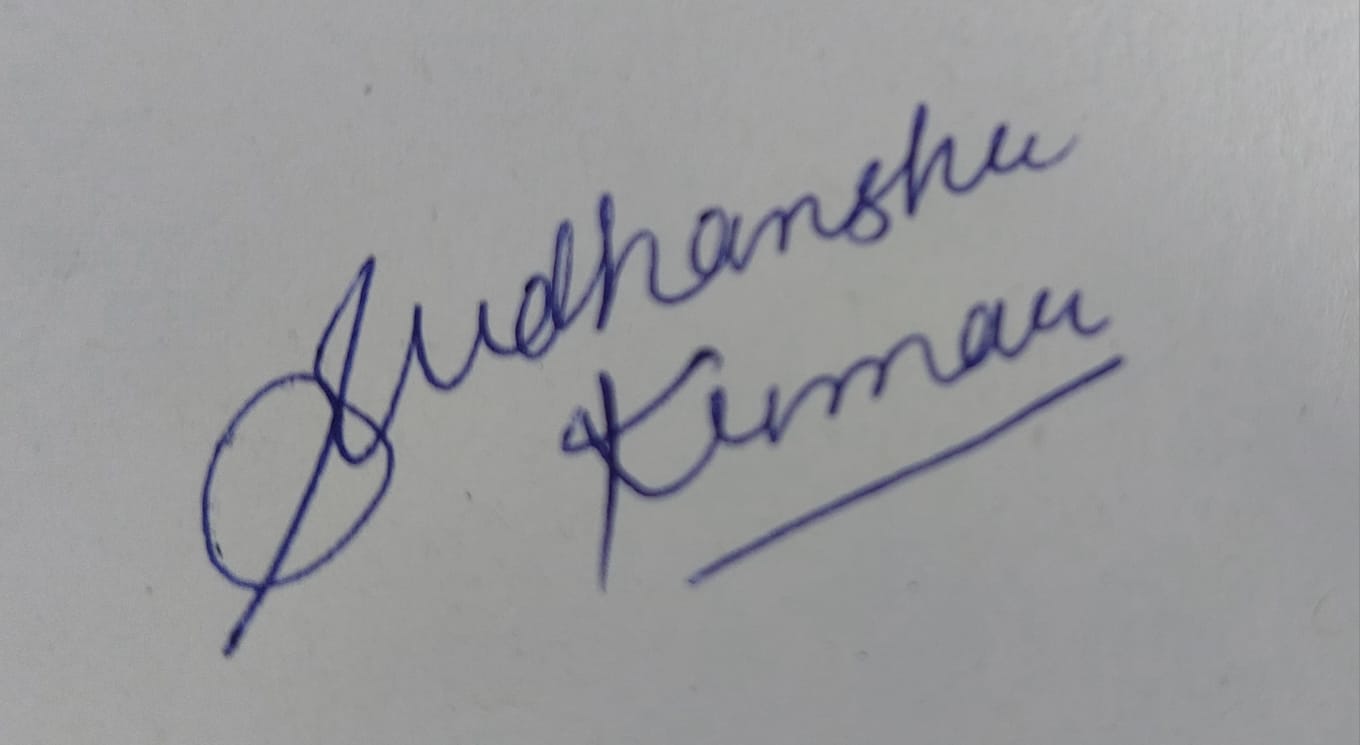 Sudhanshu
Kumar